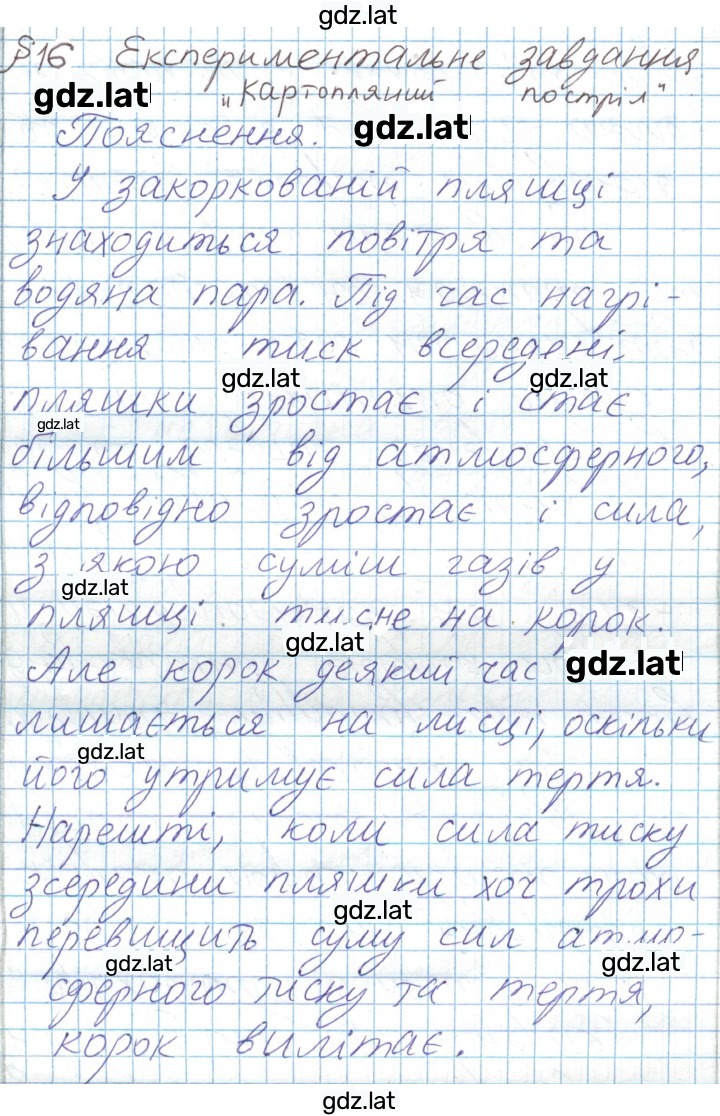 gdz.lat
§16 Експериментальне завдання
gdz.lat „Картопляний постріл"
Пояснення. gdz.lat
У закоркованій пляшці
знаходиться повітря та
водяна пара. Під час нагрі-
вання тиск всередені
gdz.lat gdz.lat
пляшки зростає і стає
gdz.lat
більшим від атмосферного,
відповідно зростає і сила,
з якою суміш газів у
gdz.lat
пляшці тисне на корок.
gdz.lat
Але корок деякий час gdz.lat
лишається на місці, оскільки
gdz.lat
його утримує сила тертя.
Нарешті, коли сила тиску
зсередини пляшки хоч трохи
gdz.lat
перевищить суму сил атмо-
gdz.lat gdz.lat
сферного тиску та тертя,
корок вилітає.
gdz.lat